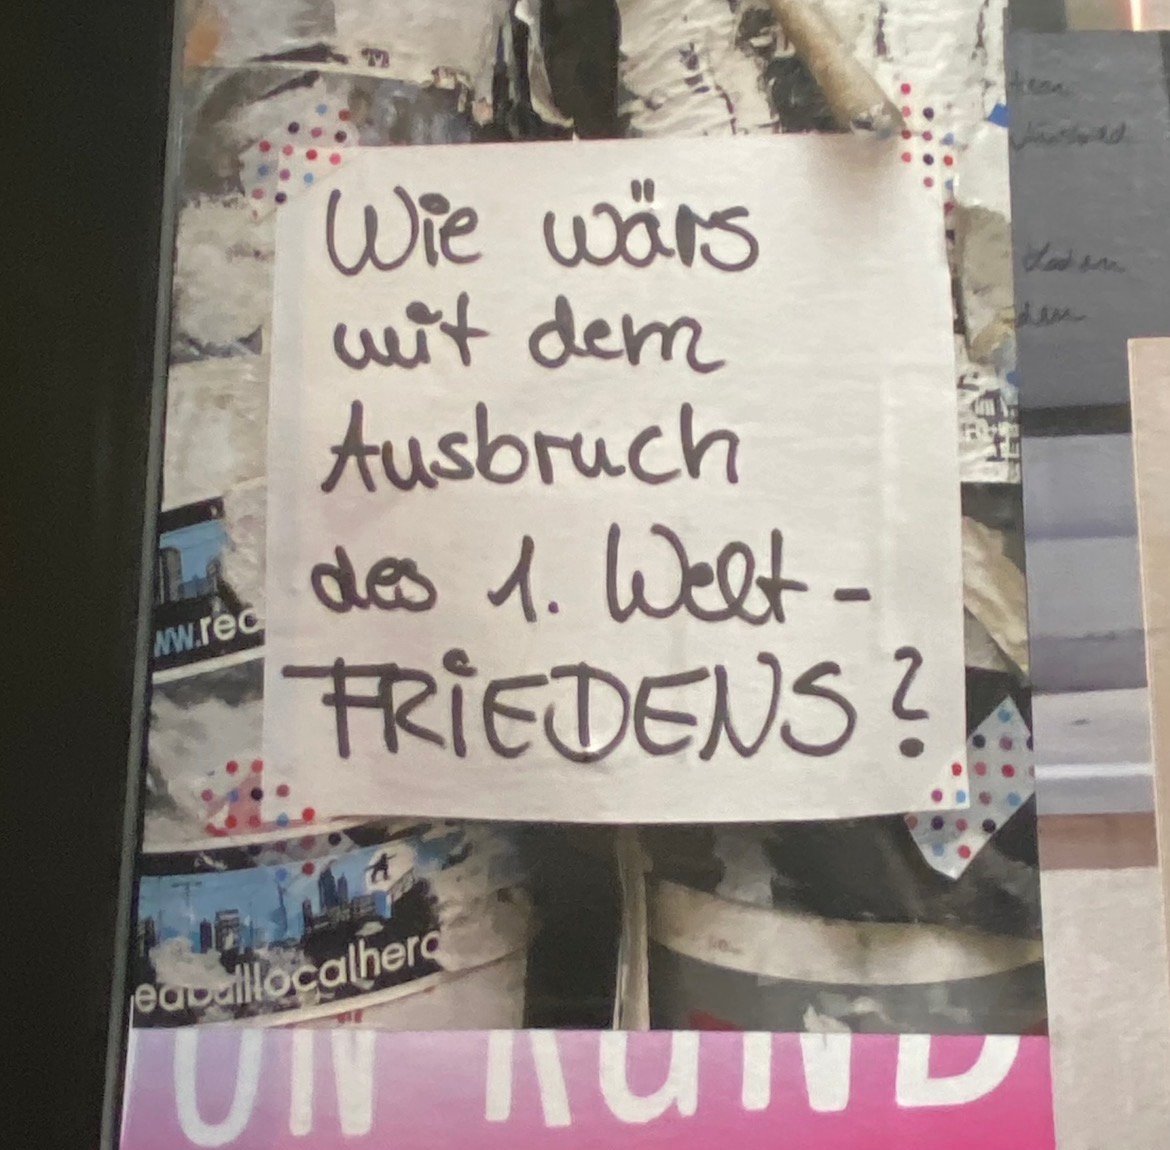 Wie wärs
mit dem
Ausbruch
des 1. Welt-
FRiEDENS?
ww.red
edbulllocalhero
ON RUND